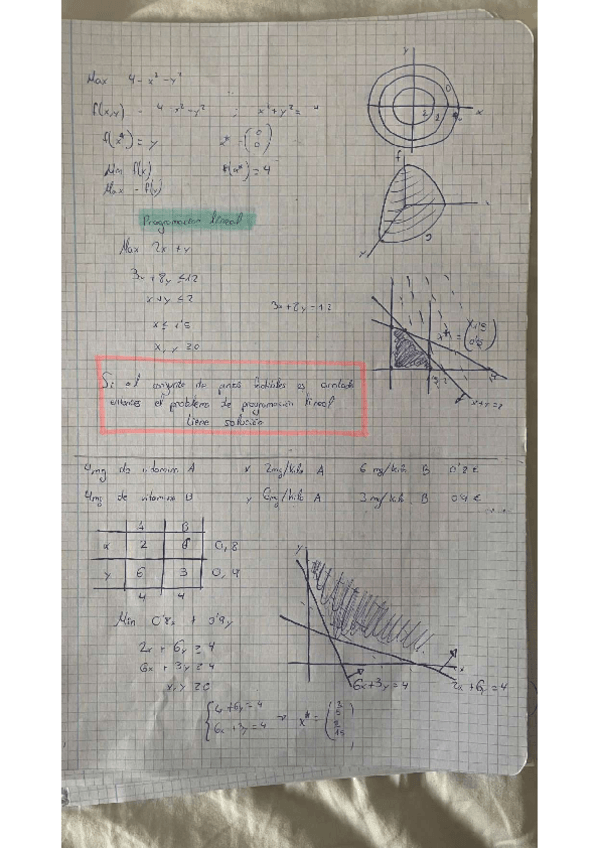 Max 4 - x² - y²
f(x,y) = 4 - x² - y² ; x² + y² =
f(x*) = y x* = (0 0)
Min f(x) f(x*) = 4
Max - f(x)
Programación lineal
Max 2x + y
3x + 8y ≤ 12
x + y ≤ 2 3x + 8y = 12
x ≤ 1'5
x, y ≥ 0
x* = (1'5 0'5)
x + y = 2
Si el conjunto de puntos factibles es acotado
entonces el problema de programación lineal
tiene solución
4mg de vitamina A x 2mg/kilo A 6 mg/kilo B 0'8 €
4mg de vitamina B y 6mg/kilo A 3 mg/kilo B 0'4 €
A B
x 2 6 0,8
y 6 3 0,4
4 4
Min 0'8x + 0'4y
2x + 6y ≥ 4
6x + 3y ≥ 4
x, y ≥ 0
6x + 3y = 4 2x + 6y = 4
6x + 3y = 4 → x* =